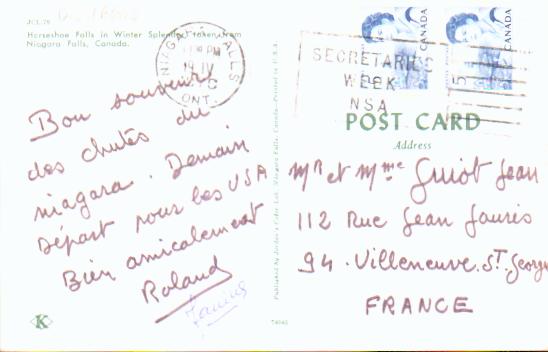 JCL/76
Horseshoe Falls in Winter Splendor taken from
Niagara Falls, Canada.
Bon souvenir
des chutes du
niagara. Demain
Départ pour les USA
Bien amicalement
Roland
Janine
K
NIAGARA FALLS
PM
IV
ONT.
SECRETARIES
WEEK
NSA
CANADA
CANADA
5
POST CARD
Address
Mr et Mme Guiot Jean
112 Rue Jean Jaurès
94 - Villeneuve. St. George
FRANCE
Niagara Falls, Canada—Printed in U.S.A.
Published by